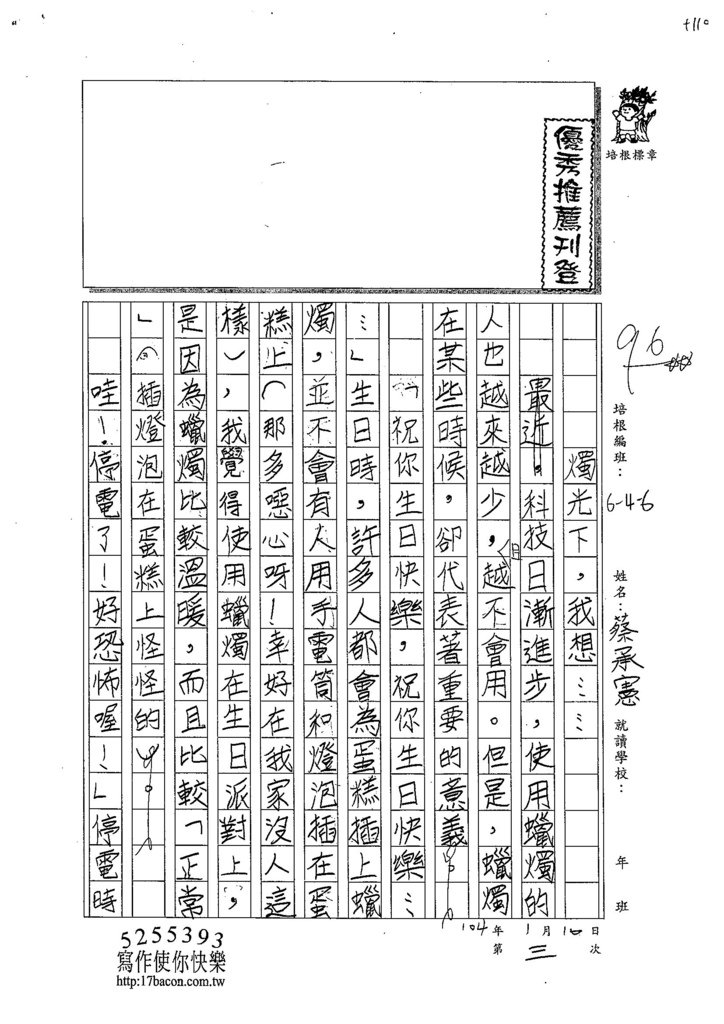 +110
培根標章
優秀推薦刊登
96
培根編班：6-4-6
姓名：蔡承憲
就讀學校：
年 班
104年1月10日
第三次
燭光下，我想……
最近，科技日漸進步，使用蠟燭的
人也越來越少，越不會用。但是，蠟燭
在某些時候，卻代表著重要的意義。
「祝你生日快樂，祝你生日快樂…
…」生日時，許多人都會為蛋糕插上蠟
燭，並不會有人用手電筒和燈泡插在蛋
糕上（那多噁心呀！幸好在我家沒人這
樣），我覺得使用蠟燭在生日派對上，
是因為蠟燭比較溫暖，而且比較「正常
」（插燈泡在蛋糕上怪怪的）。
哇！停電了！好恐怖喔！」停電時
5255393
寫作使你快樂
http:17bacon.com.tw